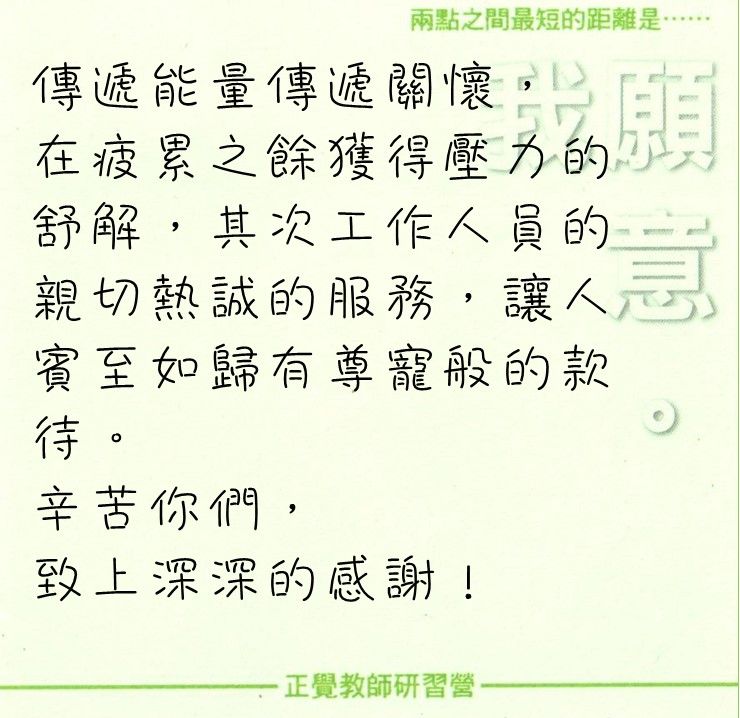 兩點之間最短的距離是……
我願意。
傳遞能量傳遞關懷，
在疲累之餘獲得壓力的
舒解，其次工作人員的
親切熱誠的服務，讓人
賓至如歸有尊寵般的款
待。
辛苦你們，
致上深深的感謝！
正覺教師研習營